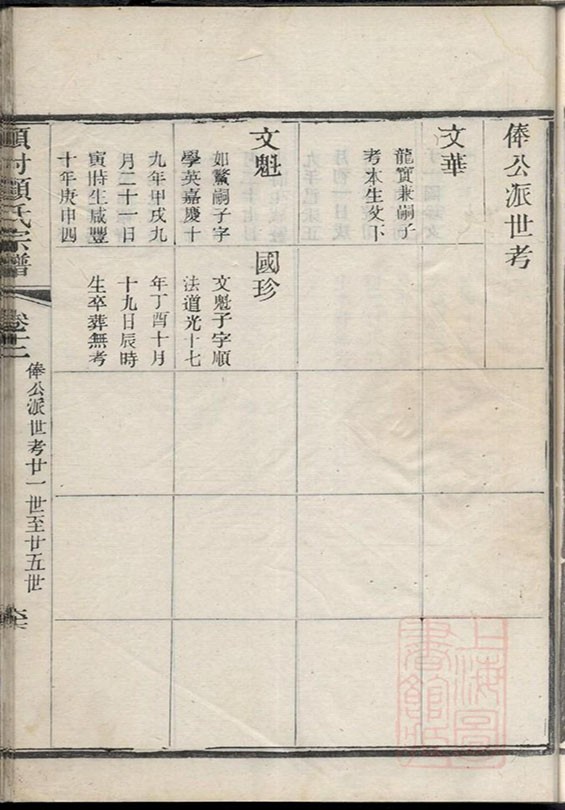 俸公派世考
文華
龍寶兼嗣子
考本生父下
文魁
如鰲嗣子字
學英嘉慶十
九年甲戌九
月二十一日
寅時生咸豐
十年庚申四
國珍
文魁子字順
法道光十七
年丁酉十月
十九日辰時
生卒葬無考
顧氏宗譜
卷十二
俸公派世考廿一世至廿五世
上海圖書館藏